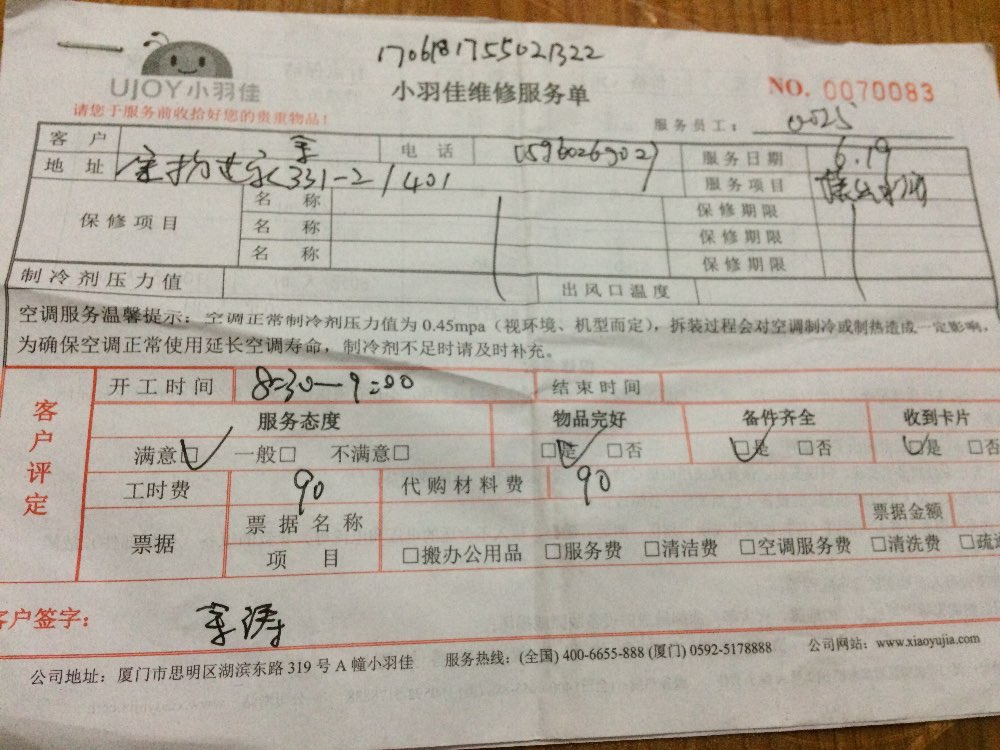 1706181755021322
UJOY小羽佳
小羽佳维修服务单
NO. 0070083
请您于服务前收拾好您的贵重物品!
服务员工: 0025
客户 电话 服务日期 6.19
地址 331-2/401 服务项目
保修项目 名称 保修期限
名称 保修期限
名称 保修期限
制冷剂压力值 出风口温度
空调服务温馨提示:空调正常制冷剂压力值为 0.45mpa(视环境、机型而定),拆装过程会对空调制冷或制热造成一定影响,
为确保空调正常使用延长空调寿命,制冷剂不足时请及时补充。
客户评定
开工时间 8:30—9:00 结束时间
服务态度 物品完好 备件齐全 收到卡片
满意□ 一般□ 不满意□ □是 □否 □是 □否 □是 □否
工时费 90 代购材料费 90
票据 票据名称 票据金额
项目 □搬办公用品 □服务费 □清洁费 □空调服务费 □清洗费 □疏
客户签字:
公司地址:厦门市思明区湖滨东路 319 号 A 幢小羽佳 服务热线:(全国) 400-6655-888 (厦门) 0592-5178888 公司网站:www.xiaoyujia.com